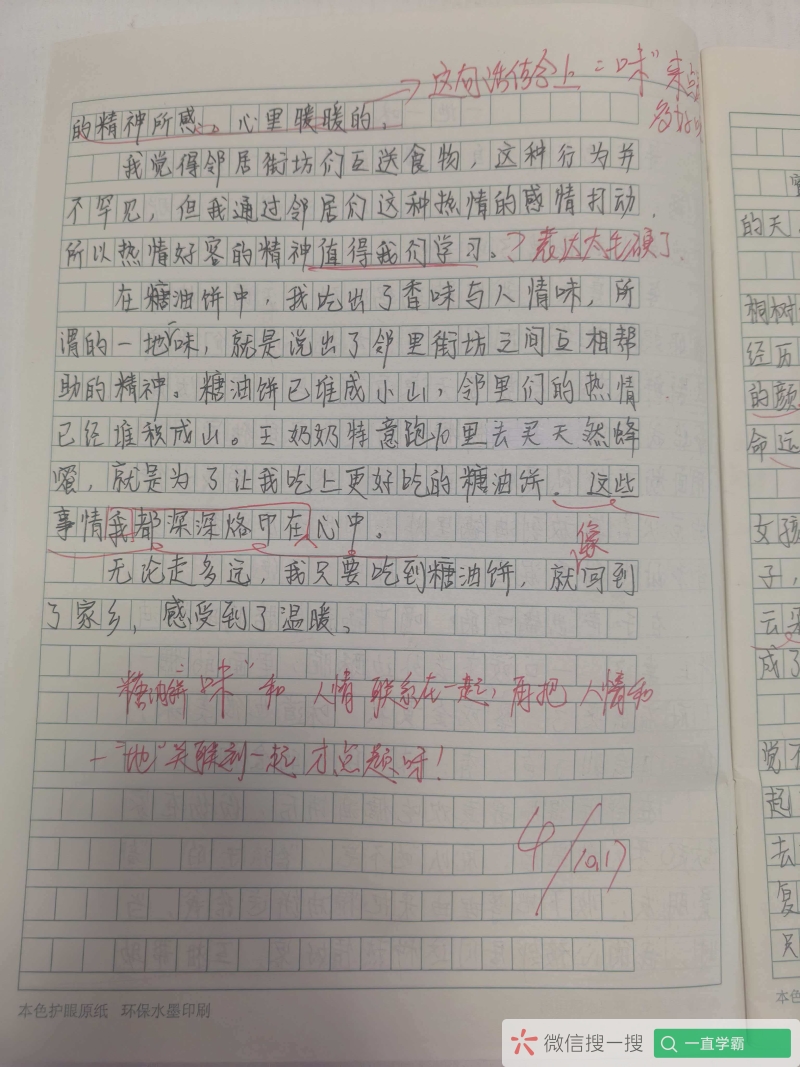 这句话结合上"味"来点
的精神所感。心里暖暖的，
我觉得邻居街坊们互送食物，这种行为并
不罕见，但我通过邻居们这种热情的感情打动，
所以热情好客的精神值得我们学习。？表达太生硬了
在糖油饼中，我吃出了香味与人情味，所
谓的一地味，就是说出了邻里街坊之间互相帮
助的精神。糖油饼已堆成小山，邻里们的热情
已经堆积成山。王奶奶特意跑10里去买天然蜂
蜜，就是为了让我吃上更好吃的糖油饼。这些
事情我都深深烙印在心中。
像
无论走多远，我只要吃到糖油饼，就回到
了家乡，感受到了温暖。
糖油饼"味"和人情联系在一起，再把人情和
一"地"关联到一起才点题呀！
本色护眼原纸 环保水墨印刷
的天
桐树
经历
的颜
命运
女孩
子，
云采
成了
觉不
起
去
复
只
本色
微信搜一搜
一直学霸